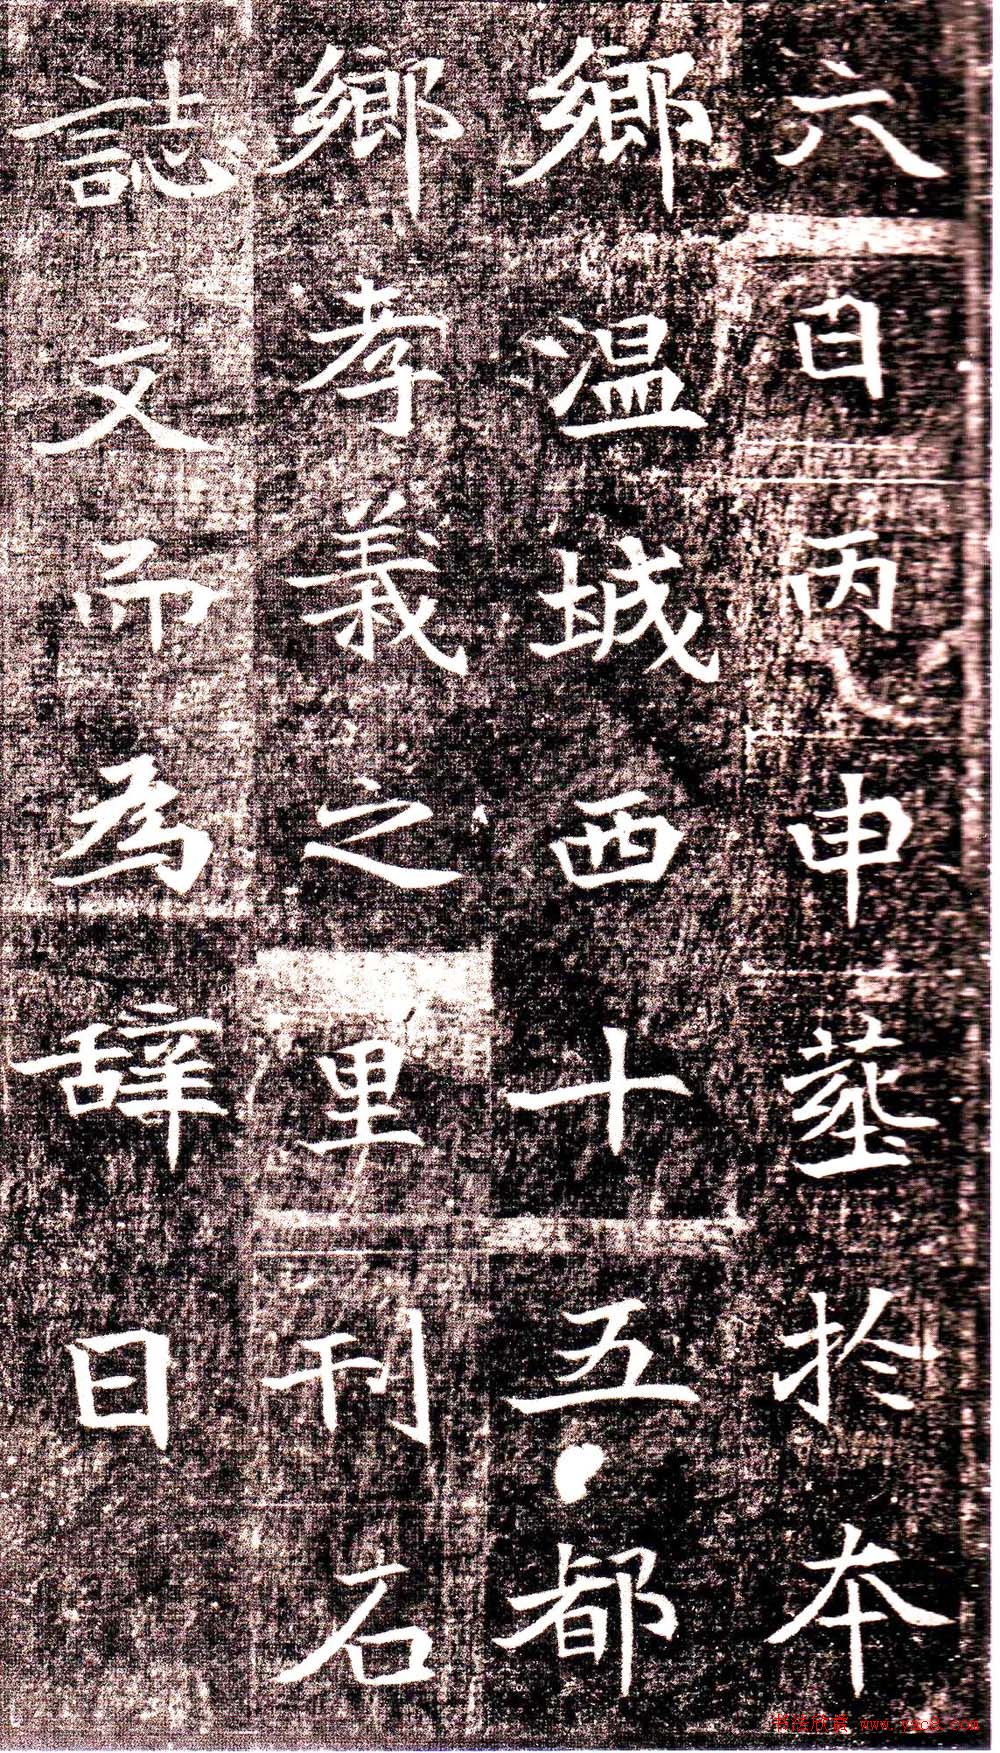 六日丙申葬於本
鄉温城西十五都
鄉孝義之里刊石
誌文而為辞曰
书法欣赏 www.yac8.com